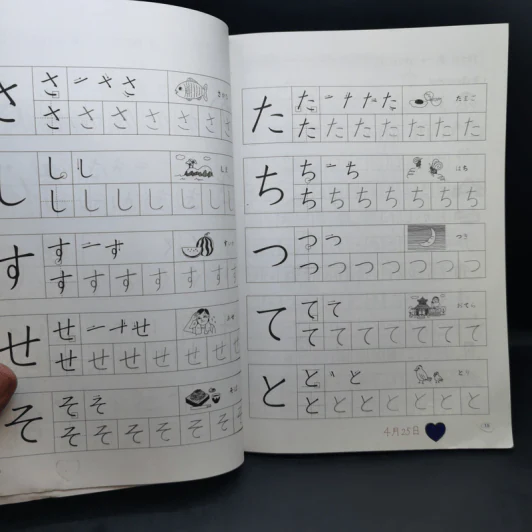 さ さ 一 さ さ
さ さ さ さ さ さ
し し し
し し し し し し
す す 一 す
す す す す す す
せ せ 一 ナ せ
せ せ せ せ せ せ
そ そ そ
そ そ そ そ そ そ
た た 一 ナ た た たまご
た た た た た た た
ち ち 一 ち はち
ち ち ち ち ち ち ち
つ つ つ つき
つ つ つ つ つ つ つ
て て て おてら
て て て て て て て
と と 、 と とり
と と と と と と と
4月25日